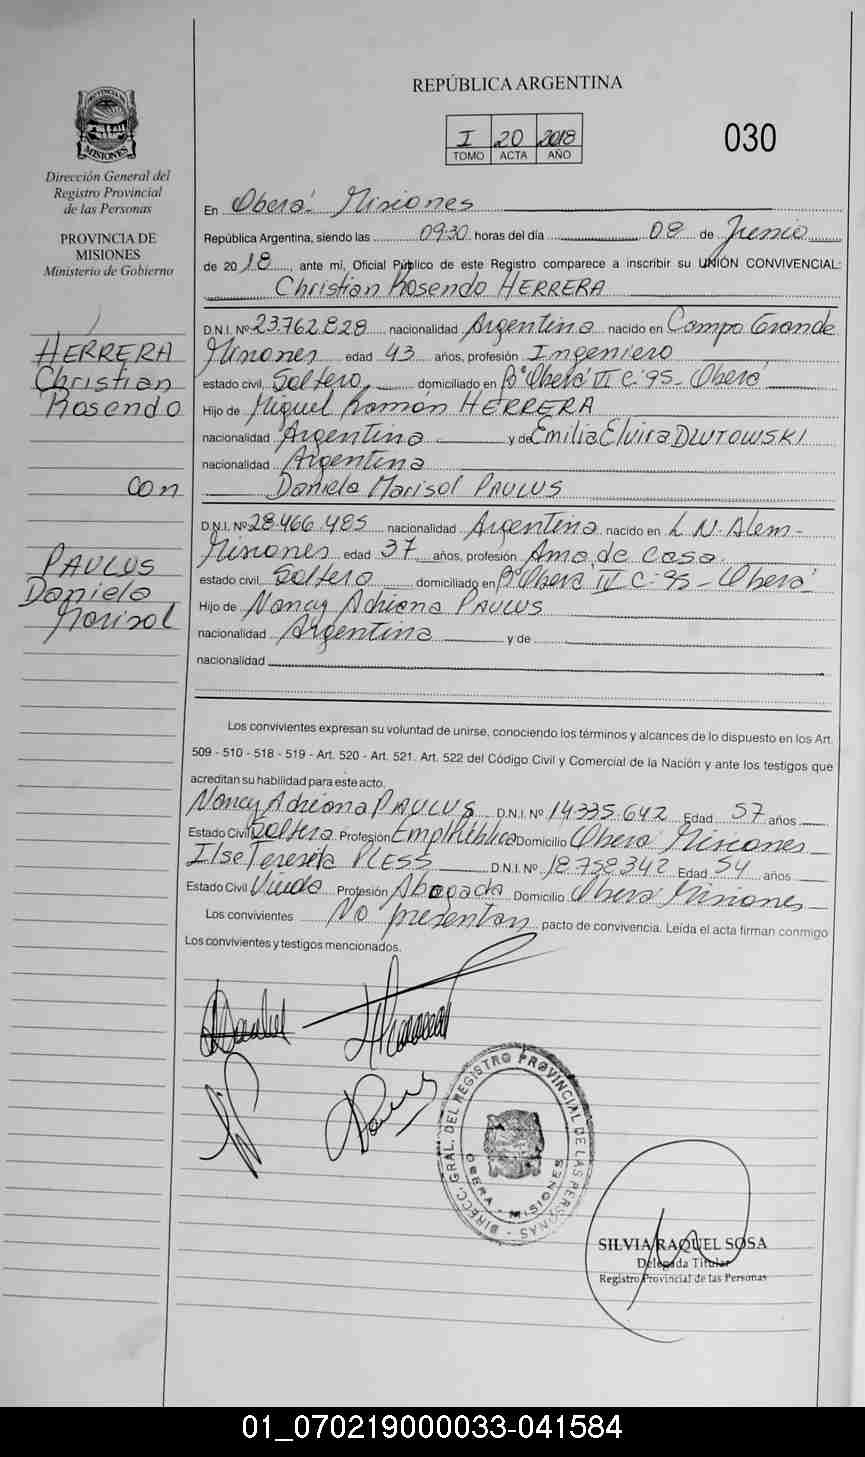 REPÚBLICA ARGENTINA
I 20 2018
TOMO ACTA AÑO
030
PROVINCIA DE MISIONES
Dirección General del
Registro Provincial
de las Personas
PROVINCIA DE
MISIONES
Ministerio de Gobierno
HERRERA
Christian
Rosendo
con
PAULUS
Daniela
Marisol
En Oberá Misiones
República Argentina, siendo las 09:30 horas del día 08 de Junio
de 2018, ante mí, Oficial Público de este Registro comparece a inscribir su UNIÓN CONVIVENCIAL:
Christian Rosendo HERRERA
D.N.I. Nº 23.762.828 nacionalidad Argentina nacido en Campo Grande
Misiones edad 43 años, profesión Ingeniero
estado civil Soltero, domiciliado en Bº Oberá C: 95 - Oberá
Hijo de Miguel Ramón HERRERA
nacionalidad Argentina y de Emilia Elvira DLUTOWSKI
nacionalidad Argentina
Daniela Marisol PAULUS
D.N.I. Nº 28.466.485 nacionalidad Argentina nacido en L. N. Alem-
Misiones edad 37 años, profesión Ama de casa
estado civil Soltera domiciliado en Bº Oberá IV C: 95 - Oberá
Hijo de Nancy Adriana PAULUS
nacionalidad Argentina y de
nacionalidad
Los convivientes expresan su voluntad de unirse, conociendo los términos y alcances de lo dispuesto en los Art.
509 - 510 - 518 - 519 - Art. 520 - Art. 521. Art. 522 del Código Civil y Comercial de la Nación y ante los testigos que
acreditan su habilidad para este acto.
Nancy Adriana PAULUS D.N.I. Nº 14.335.642 Edad 57 años
Estado Civil Soltera Profesión Empl Pública Domicilio Oberá Misiones
Ilse Teresita PLESS D.N.I. Nº 18.758.342 Edad 54 años
Estado Civil Viuda Profesión Abogada Domicilio Oberá Misiones
Los convivientes No presentan pacto de convivencia. Leída el acta firman conmigo
Los convivientes y testigos mencionados.
DIRECC. GRAL. DEL REGISTRO PROVINCIAL DE LAS PERSONAS
OBERA - MISIONES
SILVIA RAQUEL SOSA
Delegada Titular
Registro Provincial de las Personas
01_070219000033-041584